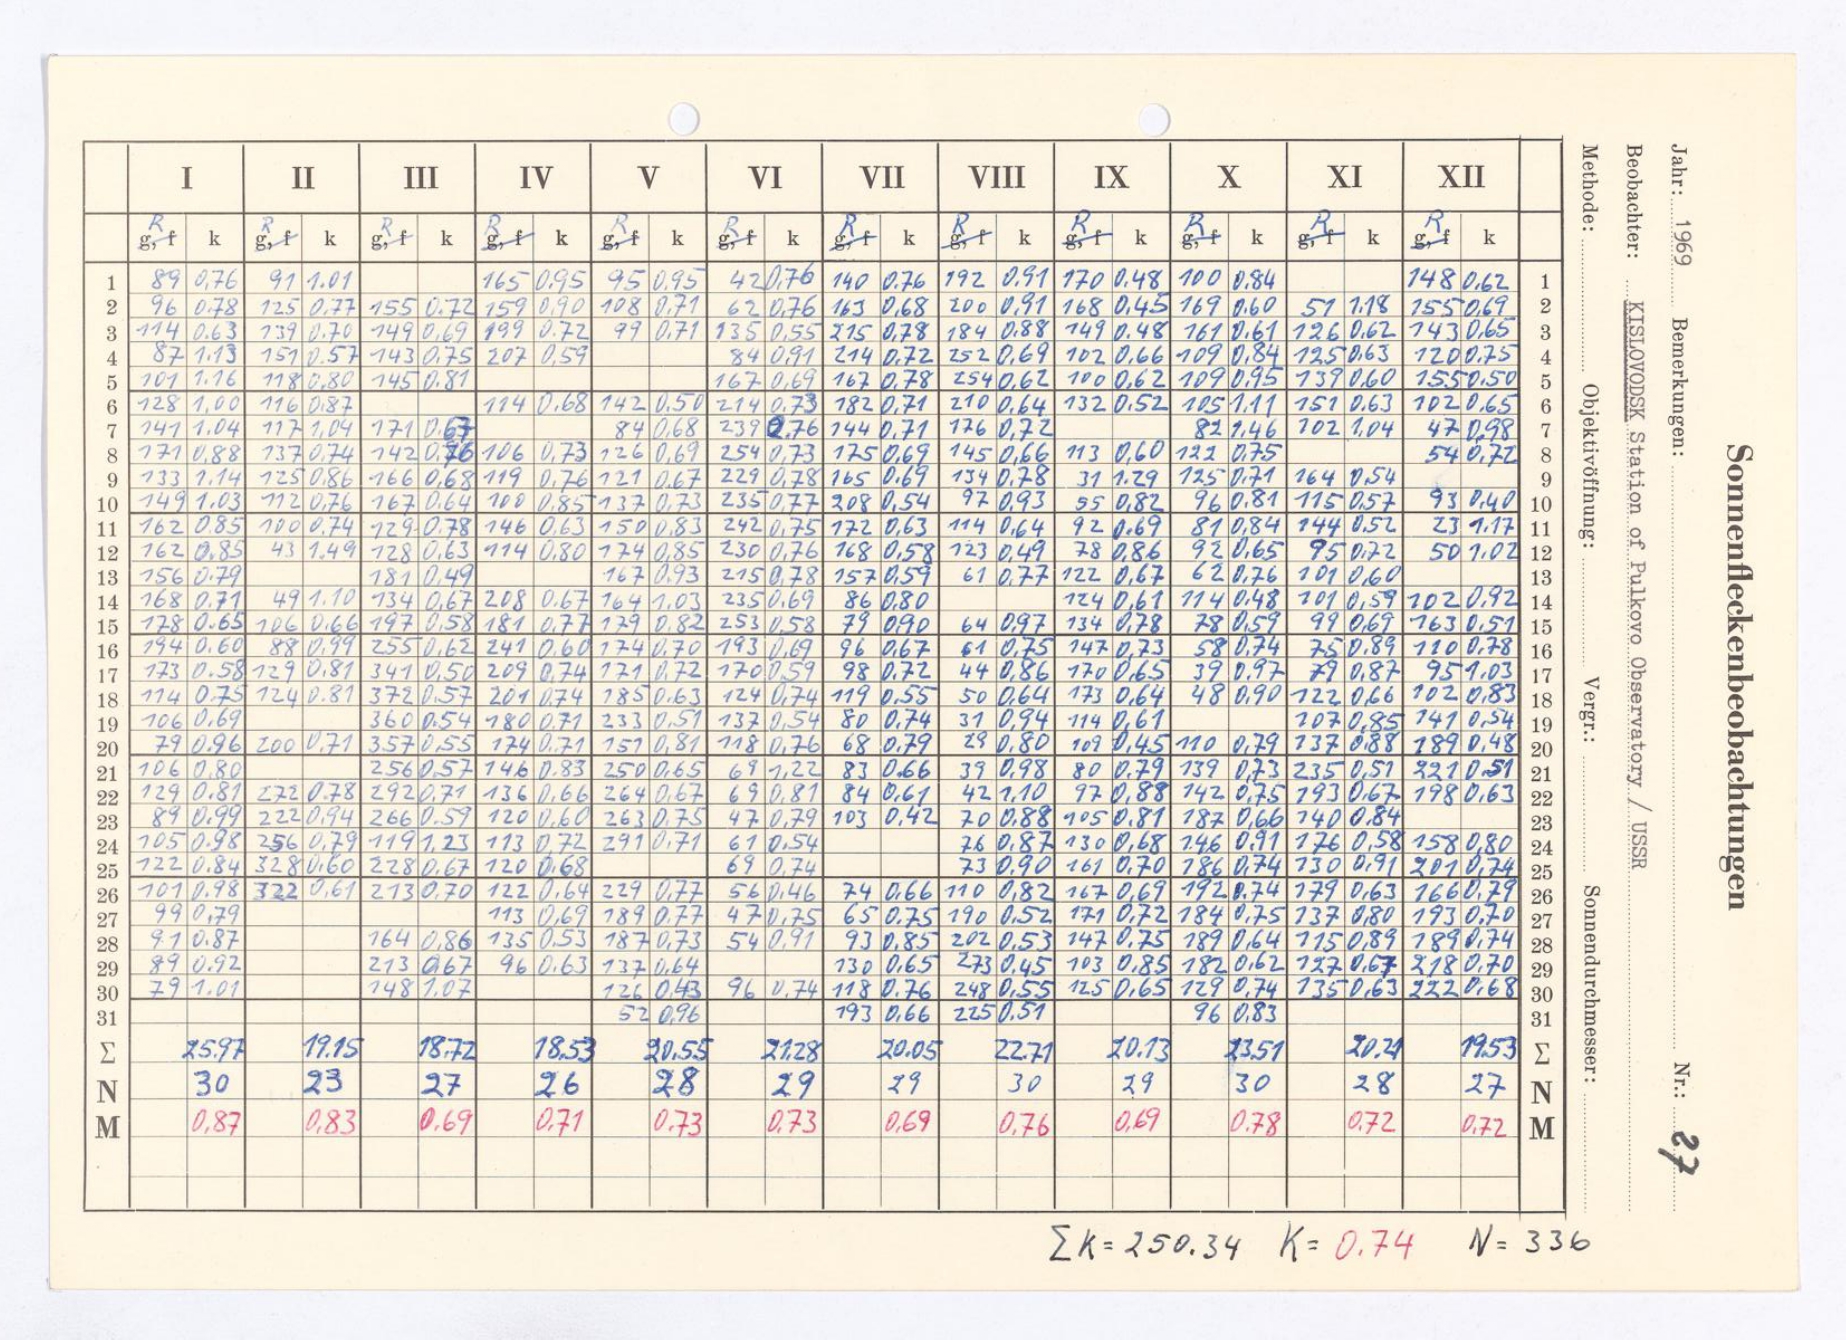 I II III IV V VI VII VIII IX X XI XII
R R R R R R R R R R R R
g, f k g, f k g, f k g, f k g, f k g, f k g, f k g, f k g, f k g, f k g, f k g, f k
1 89 0,76 91 1.01 165 0,95 95 0.95 42 0,76 140 0.76 192 0.91 170 0.48 100 0.84 148 0.62 1
2 96 0.78 125 0.77 155 0.72 159 0,90 108 0.71 62 0,76 163 0,68 200 0,91 168 0,45 169 0.60 51 1.18 155 0,69 2
3 114 0.63 139 0.70 149 0,69 199 0.72 99 0,71 135 0,55 215 0,78 184 0.88 149 0.48 161 0,61 126 0,62 143 0.65 3
4 87 1.13 151 0.57 143 0,75 207 0,59 84 0,91 214 0,72 252 0,69 102 0.66 109 0,84 125 0.63 120 0.75 4
5 101 1.16 118 0,80 145 0.81 167 0,69 167 0,78 254 0,62 100 0,62 109 0,95 139 0.60 155 0.50 5
6 128 1,00 116 0.87 114 0,68 142 0,50 214 0,73 182 0,71 210 0,64 132 0.52 105 1.11 151 0,63 102 0.65 6
7 141 1.04 117 1,04 171 0.67 84 0,68 239 0,76 144 0.71 176 0,72 82 1.46 102 1,04 47 0,98 7
8 171 0,88 137 0,74 142 0,76 106 0,73 126 0,69 254 0,73 175 0,69 145 0,66 113 0,60 122 0,75 54 0,72 8
9 133 1.14 125 0,86 166 0,68 119 0,76 121 0,67 229 0,78 165 0,69 134 0,78 31 1.29 125 0,71 164 0,54 9
10 149 1.03 112 0,76 167 0,64 100 0,85 137 0,73 235 0,77 208 0,54 97 0,93 55 0,82 96 0.81 115 0,57 93 0,40 10
11 162 0.85 100 0,74 129 0.78 146 0.63 150 0,83 242 0,75 172 0,63 114 0,64 92 0.69 81 0,84 144 0.52 23 1.17 11
12 162 0,85 43 1.49 128 0,63 114 0,80 174 0,85 230 0,76 168 0,58 123 0,49 78 0,86 92 0,65 95 0,72 50 1.02 12
13 156 0.79 181 0,49 167 0.93 215 0,78 157 0,59 61 0,77 122 0,67 62 0,76 101 0,60 13
14 168 0.71 49 1.10 134 0,67 208 0.67 164 1.03 235 0.69 86 0,80 124 0,61 114 0,48 101 0,59 102 0,92 14
15 178 0.65 106 0,66 197 0,58 181 0,77 179 0,82 253 0,58 79 0,90 64 0,97 134 0,78 78 0,59 99 0,69 163 0,51 15
16 194 0.60 88 0,99 255 0,62 241 0.60 174 0,70 193 0,69 96 0,67 61 0,75 147 0,73 58 0,74 75 0.89 110 0.78 16
17 173 0.58 129 0,81 341 0,50 209 0,74 171 0,72 170 0,59 98 0.72 44 0,86 170 0,65 39 0,97 79 0,87 95 1.03 17
18 114 0.75 124 0.81 372 0.57 201 0,74 185 0.63 124 0,74 119 0.55 50 0,64 173 0,64 48 0,90 122 0,66 102 0,83 18
19 106 0,69 360 0.54 180 0,71 233 0,51 137 0,54 80 0,74 31 0,94 114 0,61 107 0,85 141 0,54 19
20 79 0.96 200 0,71 357 0,55 174 0.71 151 0,81 118 0,76 68 0,79 29 0,80 109 0,45 110 0,79 137 0,88 189 0,48 20
21 106 0,80 256 0,57 146 0.83 250 0,65 69 1,22 83 0.66 39 0,98 80 0.79 139 0,73 235 0,51 221 0.51 21
22 129 0.81 272 0.78 292 0,71 136 0,66 264 0,67 69 0,81 84 0,61 42 1,10 97 0,88 142 0,75 193 0,67 198 0,63 22
23 89 0,99 222 0,94 266 0.59 120 0,60 263 0.75 47 0,79 103 0,42 70 0.88 105 0.81 187 0,66 140 0.84 23
24 105 0.98 256 0,79 119 1.23 113 0,72 291 0,71 61 0,54 76 0.87 130 0,68 146 0,91 176 0,58 158 0,80 24
25 122 0.84 328 0.60 228 0,67 120 0.68 69 0,74 73 0,90 161 0,70 186 0,74 130 0,91 201 0,74 25
26 101 0.98 322 0,61 213 0,70 122 0,64 229 0,77 56 0,46 74 0,66 110 0,82 167 0,69 192 0.74 179 0,63 166 0,79 26
27 99 0,79 113 0,69 189 0.77 47 0,75 65 0.75 190 0.52 171 0,72 184 0,75 137 0,80 193 0.70 27
28 91 0.87 164 0,86 135 0.53 187 0,73 54 0,91 93 0,85 202 0,53 147 0.75 189 0,64 115 0,89 189 0,74 28
29 89 0.92 213 0,67 96 0.63 137 0,64 130 0,65 273 0.45 103 0,85 182 0,62 127 0,67 218 0.70 29
30 79 1.01 148 1.07 126 0,43 96 0,74 118 0.76 248 0,55 125 0,65 129 0,74 135 0,63 222 0,68 30
31 52 0,96 193 0,66 225 0.51 96 0,83 31
Σ 25.97 19.15 18.72 18.53 20.55 21.28 20.05 22.71 20.13 23.51 20.21 19.53 Σ
N 30 23 27 26 28 29 29 30 29 30 28 27 N
M 0,87 0,83 0.69 0,71 0.73 0.73 0,69 0.76 0,69 0.78 0.72 0,72 M
Σ k = 250.34 K = 0.74 N = 336
Sonnenfleckenbeobachtungen
Jahr: 1969 Bemerkungen: Nr.: 27
Beobachter: KISLOVODSK Station of Pulkovo Observatory / USSR
Methode: Objektivöffnung: Vergr.: Sonnendurchmesser: